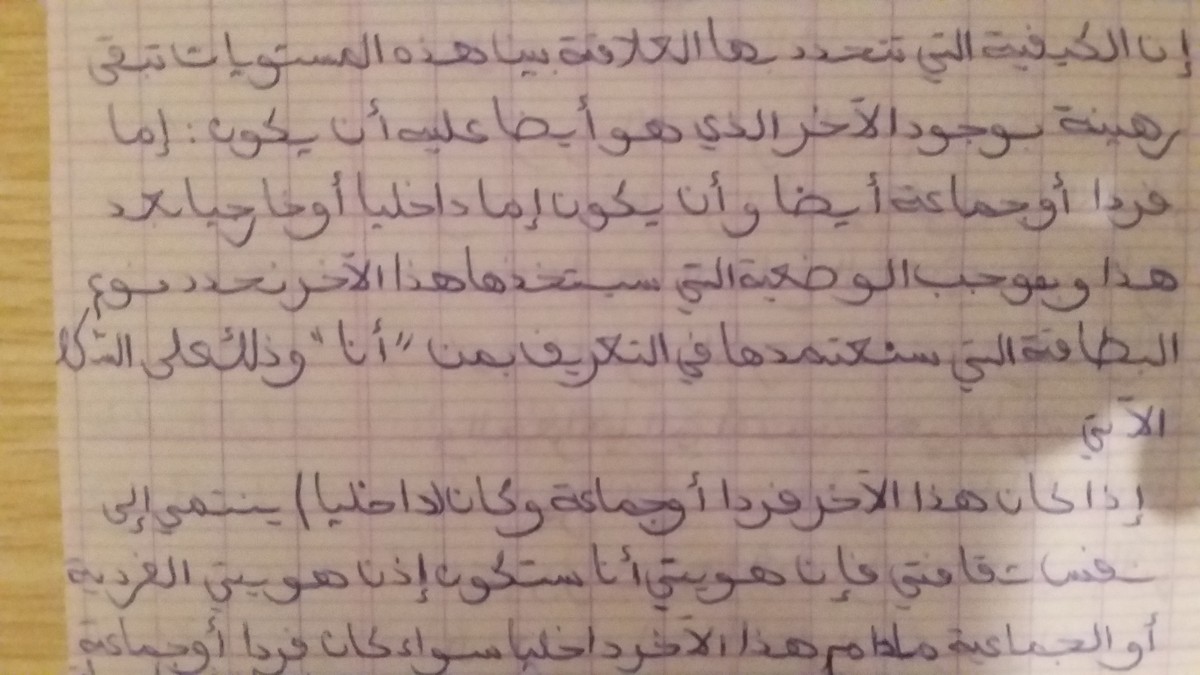 إن الكيفية التي تتحدد بها العلاقة بين هذه المستويات تبقى
رهينة بوجود الآخر الذي هو أيضا عليه أن يكون: إما
فردا أو جماعة أيضا وأن يكون إما داخليا أو خارجيا بعد
هذا وبموجب الوضعية التي سيتخذها هذا الآخر نحدد نوع
البطاقة التي سنعتمدها في التعريف بمن "أنا" وذلك على الشكل
الآتي
إذا كان هذا الآخر فردا أو جماعة وكان (داخليا) ينتمي إلى
نفس ثقافتي فإن هويتي أنا ستكون إذن هويتي الفردية
أو الجماعية مادام هذا الآخر داخليا سواء كان فردا أو جماعة